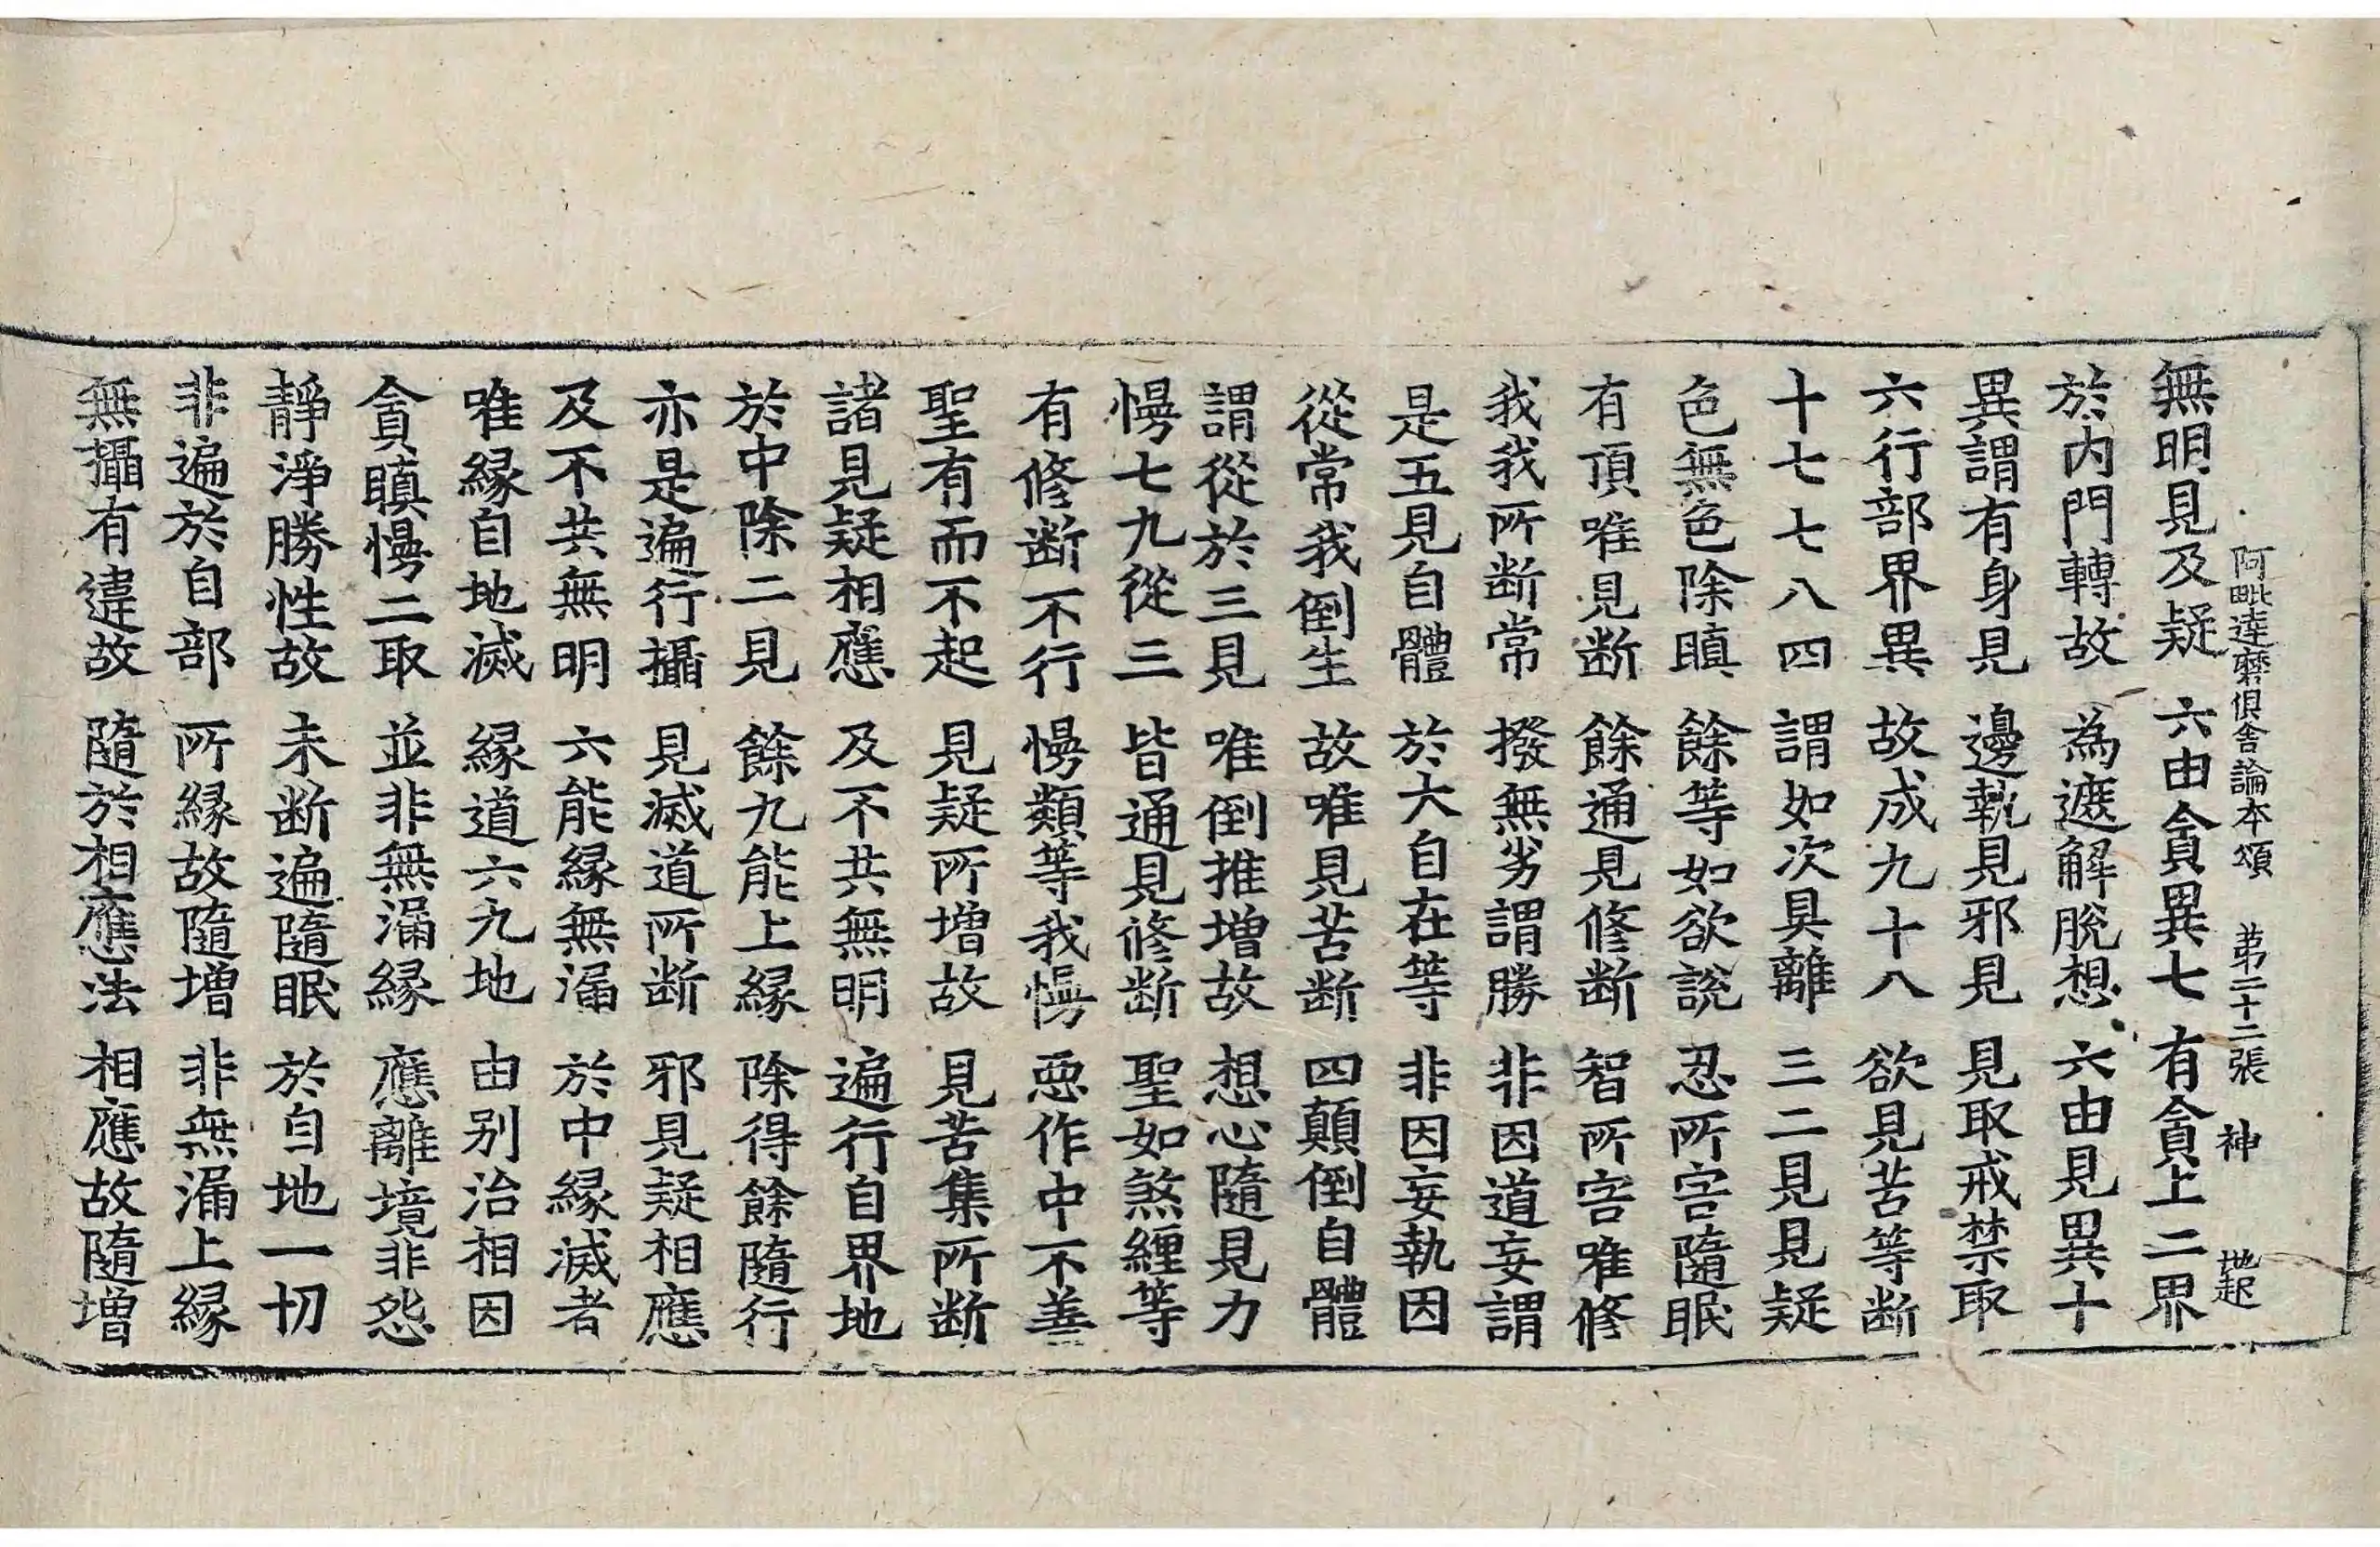 阿毗達磨俱舍論本頌 苐二十二張 神 地起
無明見及疑 六由貪異七 有貪上二界
於内門轉故 為遮解脫想 六由見異十
異謂有身見 邊執見邪見 見取戒禁取
六行部界異 故成九十八 欲見苦等断
十七七八四 謂如次具離 三二見見疑
色無色除瞋 餘等如欲說 忍所害隨眠
有頂唯見断 餘通見修断 智所害唯修
我我所断常 撥無劣謂勝 非因道妄謂
是五見自體 於大自在等 非因妄執因
從常我倒生 故唯見苦断 四顛倒自體
謂從於三見 唯倒推增故 想心隨見力
慢七九從三 皆通見修断 聖如煞纏等
有修断不行 慢類等我慢 惡作中不善
聖有而不起 見疑所增故 見苦集所断
諸見疑相應 及不共無明 遍行自界地
於中除二見 餘九能上緣 除得餘隨行
亦是遍行攝 見滅道所断 邪見疑相應
及不共無明 六能緣無漏 於中緣滅者
唯緣自地滅 緣道六九地 由别治相因
貪瞋慢二取 並非無漏緣 應離境非怨
靜淨勝性故 未断遍隨眠 於自地一切
非遍於自部 所緣故隨增 非無漏上緣
無攝有違故 隨於相應法 相應故隨增